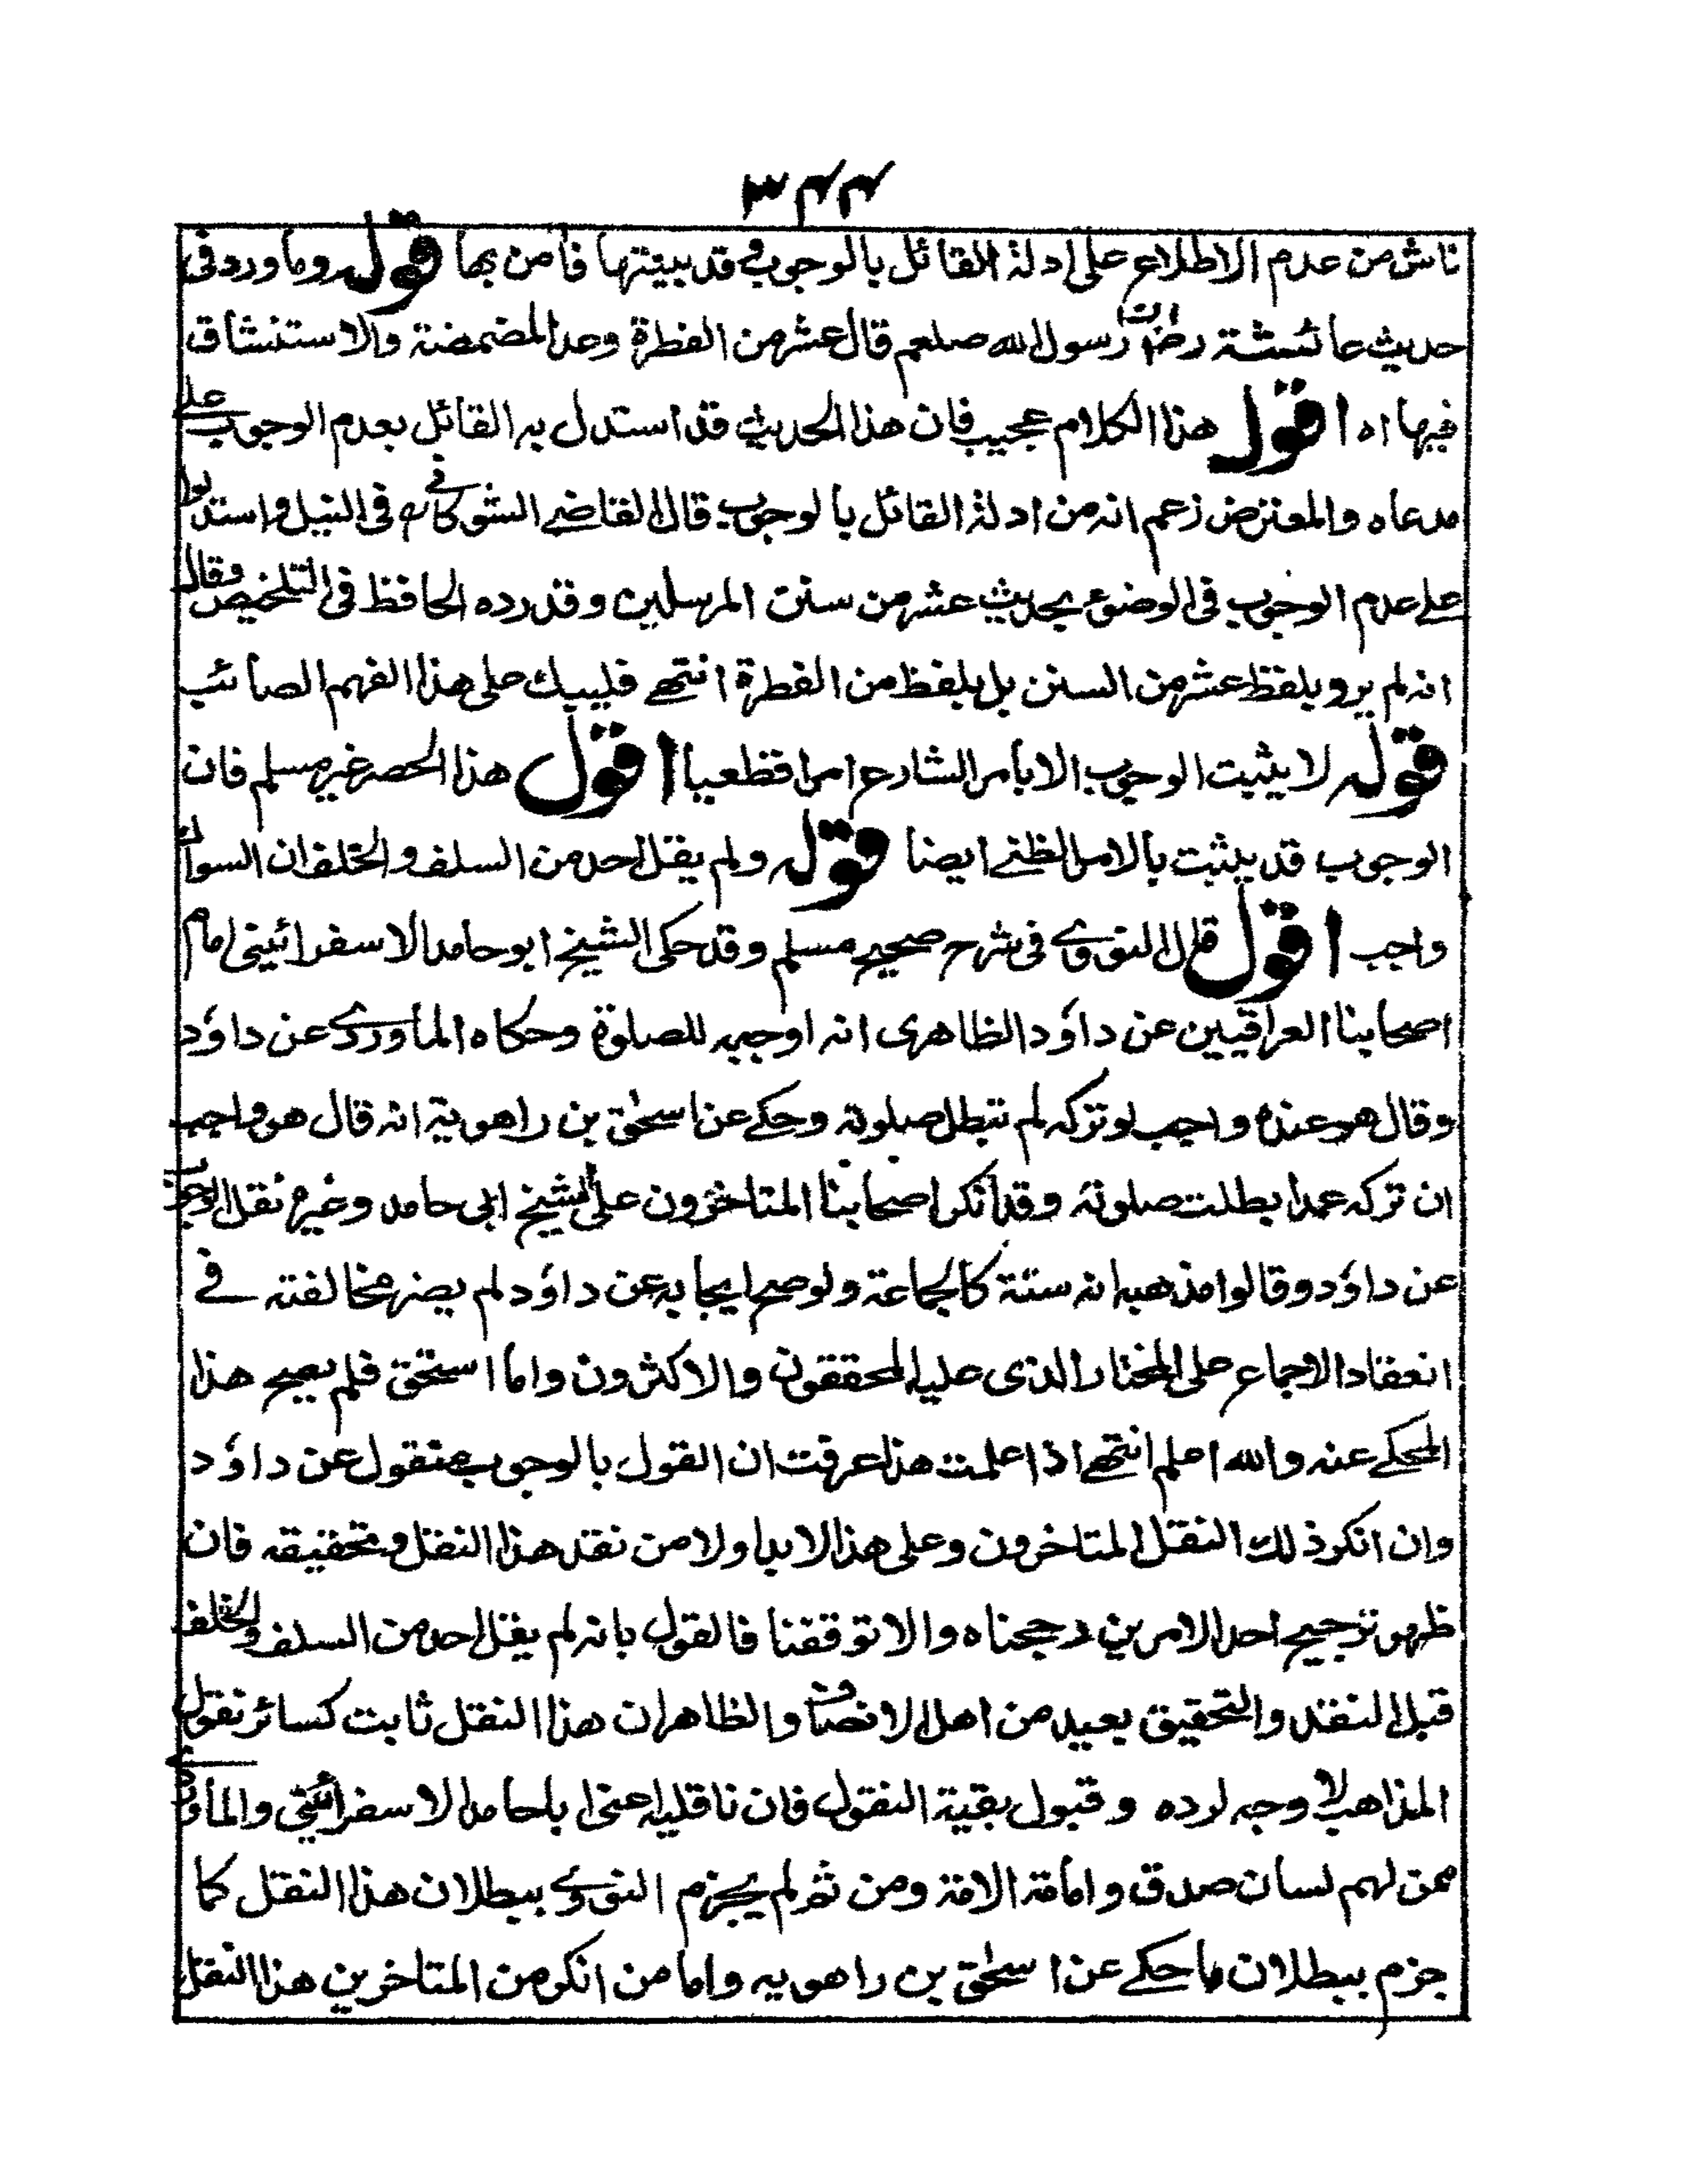 ٣٤٤
ناش من عدم الاطلاع على ادلة القائل بالوجوب وقد بينتها فامن بها قوله وما ورد فى
حديث عائشة رض ان رسول الله صلعم قال عشر من الفطرة وعد المضمضة والاستنشاق
فيها اه اقول هذا الكلام عجيب فان هذا الحديث قد استدل به القائل بعدم الوجوب على
مدعاه والمعترض زعم انه من ادلة القائل بالوجوب قال القاضے الشوكانے فى النيل واستدلوا
علے عدم الوجوب فى الوضوء بحديث عشر من سنن المرسلين وقد رده الحافظ فى التلخيص وقال
انه لم يرو بلفظ عشر من السنن بل بلفظ من الفطرة انتهے فليبك على هذا الفهم الصائب
قوله لا يثبت الوجوب الا بامر الشارع امرا قطعيا اقول هذا الحصر غير مسلم فان
الوجوب قد يثبت بالامر الظنے ايضا قوله ولم يقل احد من السلف والخلف ان السواك
واجب اقول قال النووے فى شرح صحيح مسلم وقد حكى الشيخ ابو حامد الاسفرائينى امام
اصحابنا العراقيين عن داؤد الظاهرى انه اوجبه للصلوة وحكاه الماوردے عن داؤد
وقال هو عنده واجب لو تركه لم تبطل صلوته وحكے عن اسحٰق بن راهوية انه قال هو واجب
ان تركه عمدا بطلت صلوته وقد انكر اصحابنا المتاخرون على الشيخ ابى حامد وغيره نقل الوجوب
عن داؤد وقالوا مذهبه انه سنة كالجماعة ولو صح ايجابه عن داؤد لم يضر مخالفته فے
انعقاد الاجماع على المختار الذى عليه المحققون والاكثرون واما اسحٰق فلم يصح هذا
المحكے عنه والله اعلم انتهے اذا علمت هذا عرفت ان القول بالوجوب منقول عن داؤد
وان انكر ذلك النقل المتاخرون وعلى هذا لابد اولا من نقد هذا النقل وتحقيقه فان
ظهر ترجيح احد الامرين رجحناه والا توقفنا فالقول بانه لم يقل احد من السلف والخلف
قبل النقد والتحقيق بعيد من اهل الانصاف والظاهر ان هذا النقل ثابت كسائر نقول
المذاهب لا وجه لرده وقبول بقية النقول فان ناقليه اعنى ابا حامد الاسفرائينى والماوردے
ممن لهم لسان صدق وامامة الامة ومن ثم لم يجزم النووے ببطلان هذا النقل كما
جزم ببطلان ما حكے عن اسحٰق بن راهويه واما من انكر من المتاخرين هذا النقل